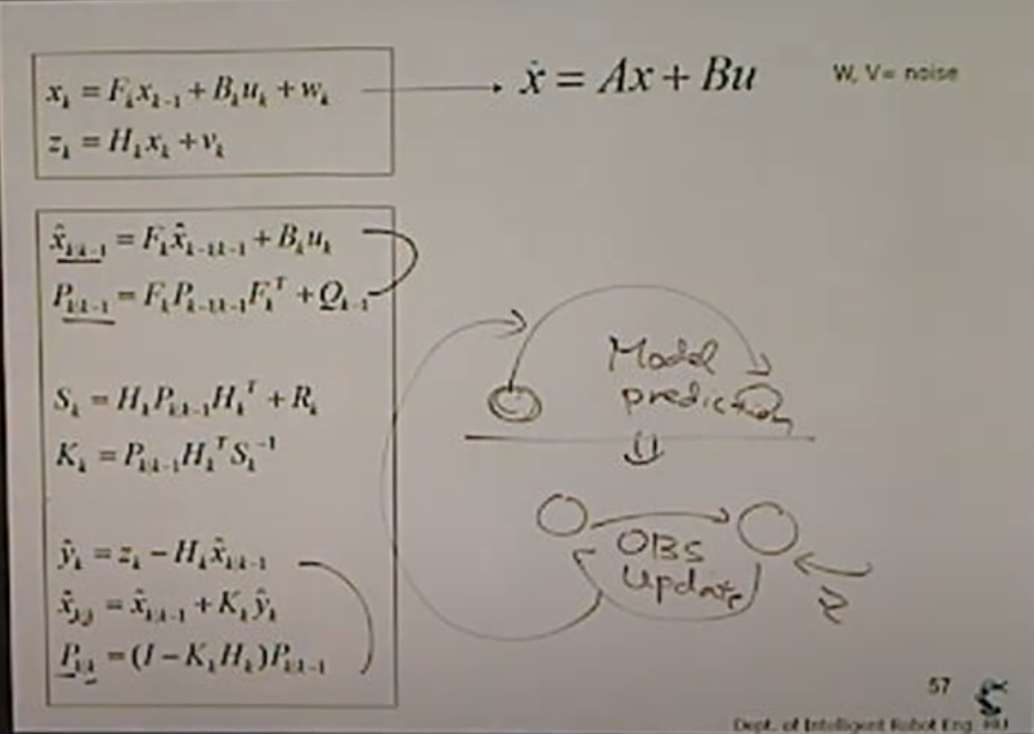 x_k = F_k x_{k-1} + B_k u_k + w_k
ẋ = Ax + Bu
W, V= noise
z_k = H_k x_k + v_k
x̂_{k|k-1} = F_k x̂_{k-1|k-1} + B_k u_k
P_{k|k-1} = F_k P_{k-1|k-1} F_k^T + Q_{k-1}
Model
prediction
S_k = H_k P_{k|k-1} H_k^T + R_k
K_k = P_{k|k-1} H_k^T S_k^{-1}
OBS
update
z
ŷ_k = z_k − H_k x̂_{k|k-1}
x̂_{k|k} = x̂_{k|k-1} + K_k ŷ_k
P_{k|k} = (I − K_k H_k) P_{k|k-1}
57
Dept. of Intelligent Robot Eng. HU